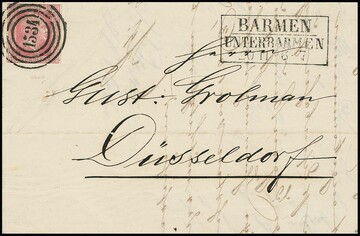 1534
BARMEN
UNTERBARMEN
Herrn
Gust. Grolman
Düsseldorf